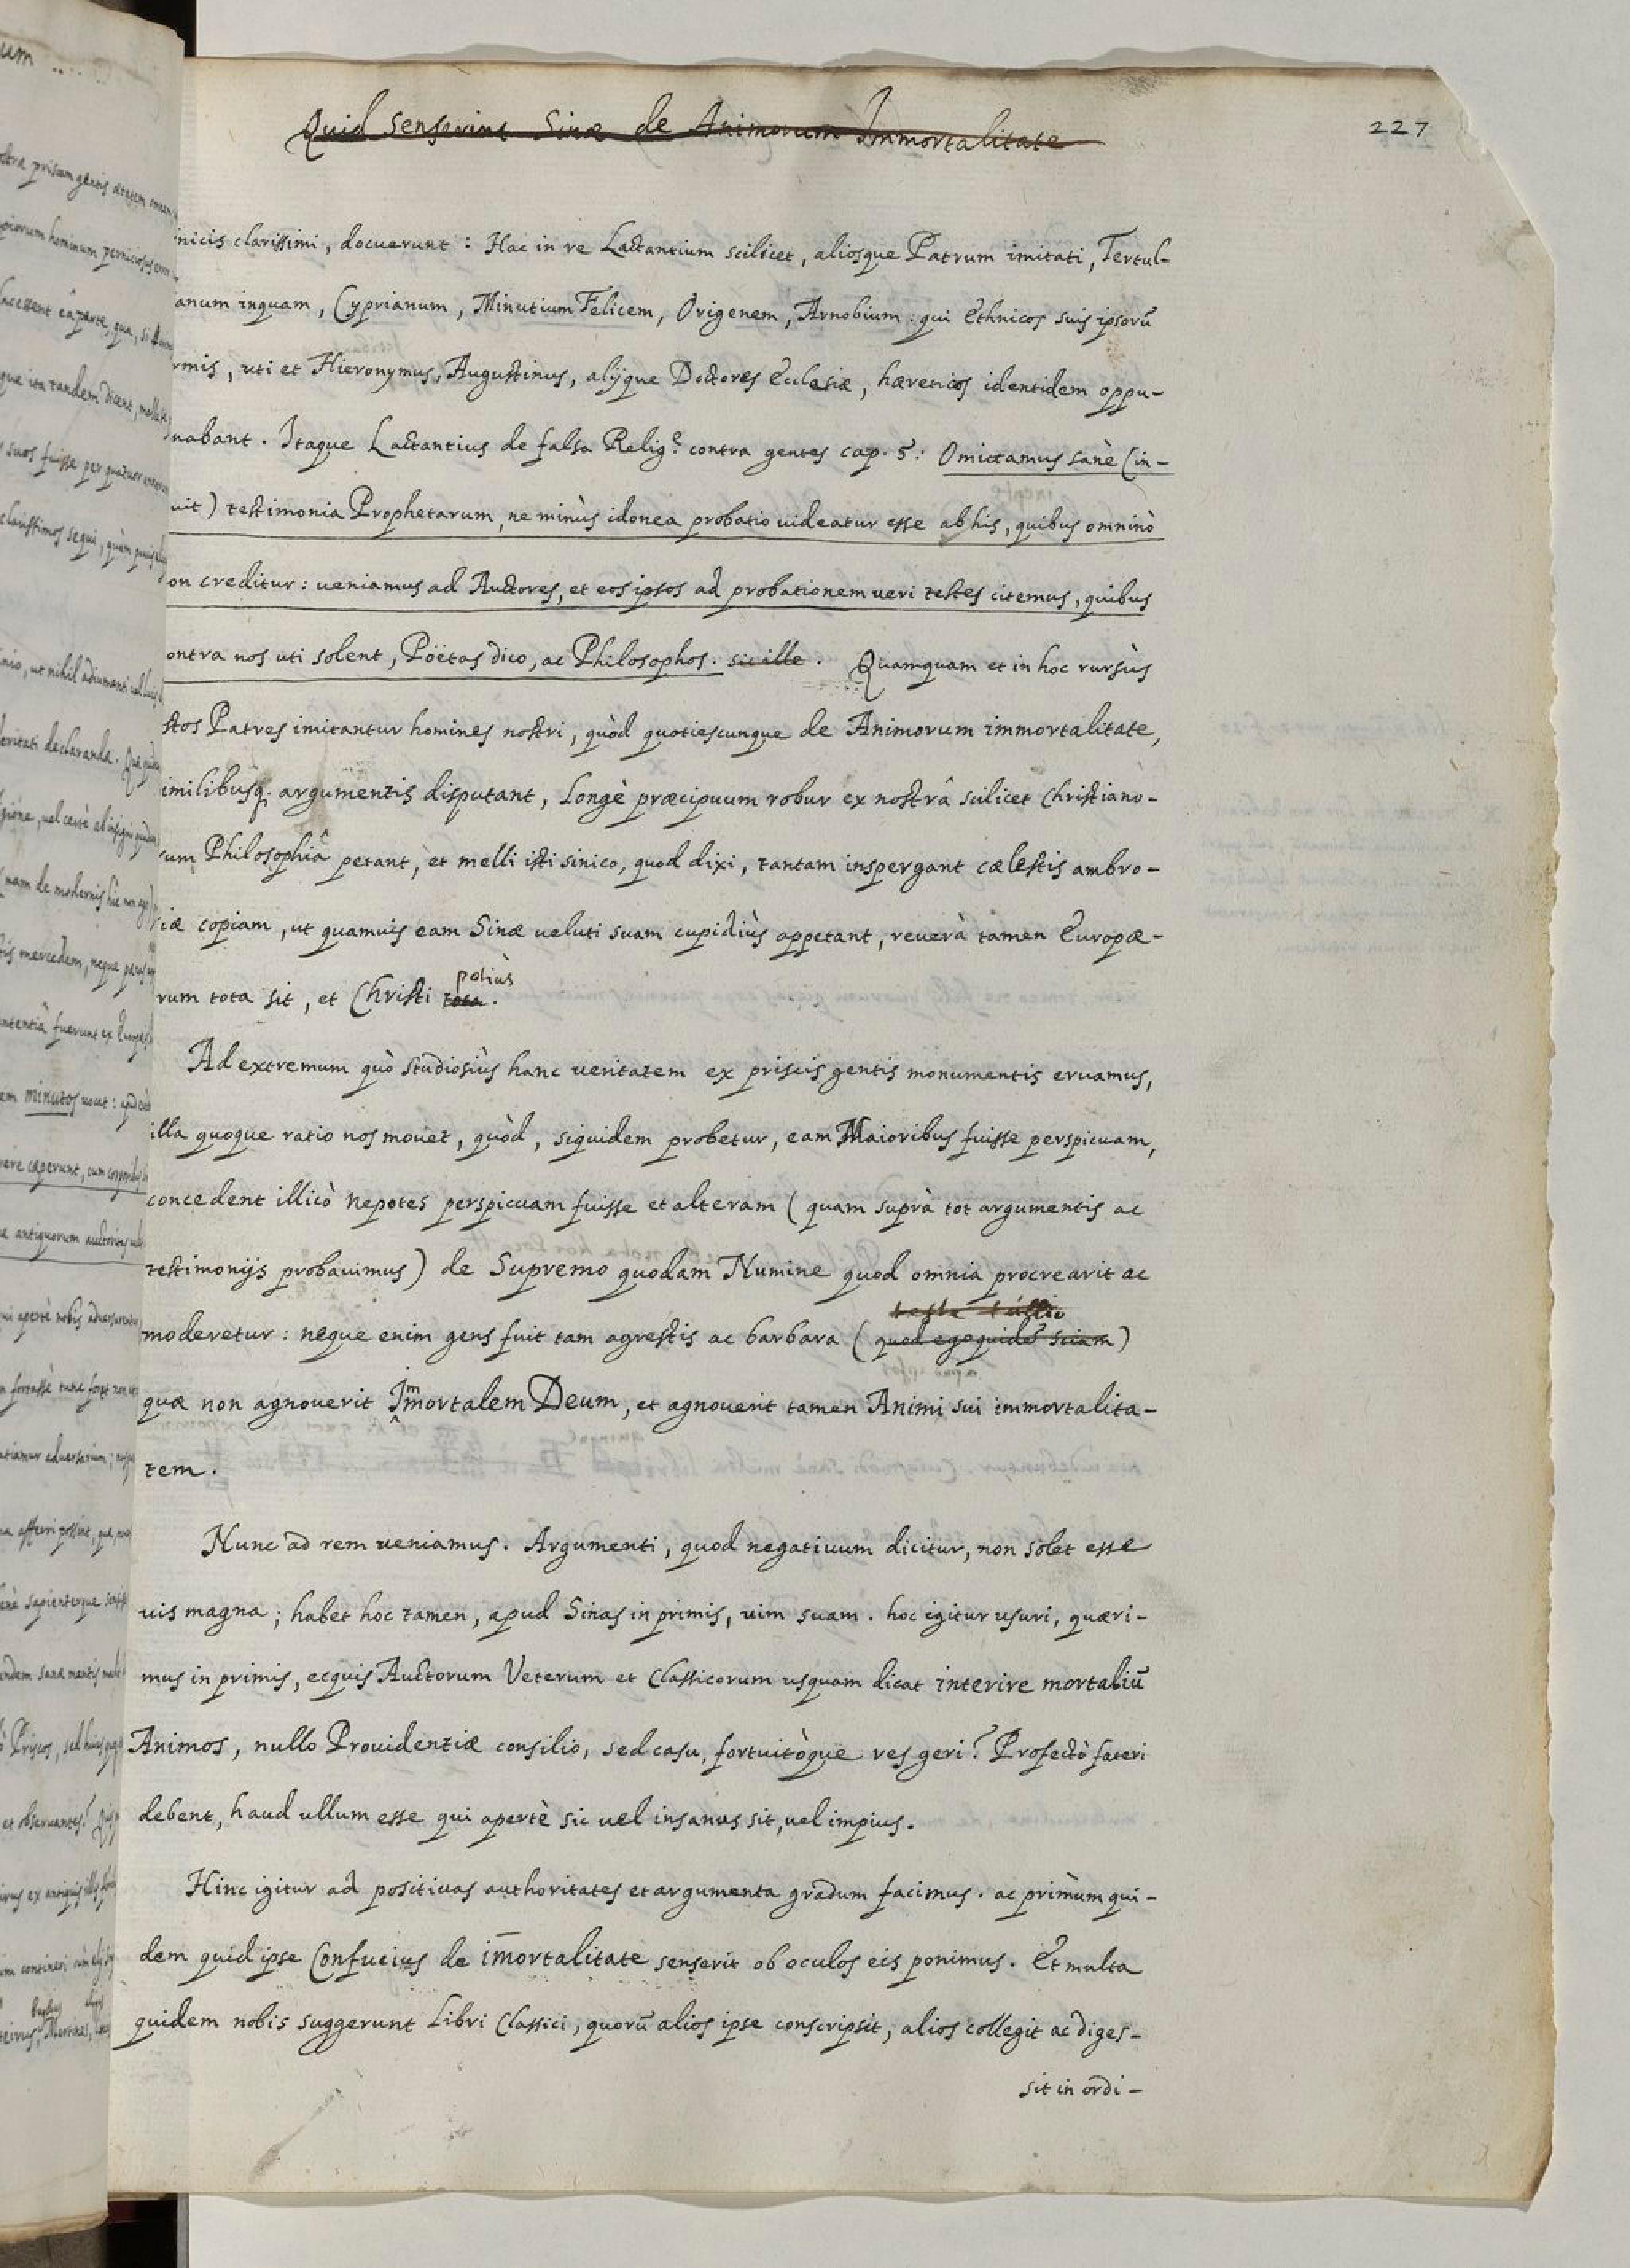 Quid senserint Sinæ de Animorum Immortalitate
227
inicis clarissimi, docuerunt: Hac in re Lactantium scilicet, aliosque Patrum imitati, Tertul-
anum inquam, Cyprianum, Minutium Felicem, Origenem, Arnobium: qui Ethnicos suis ipsorū
rmis, uti et Hieronymus, Augustinus, alijque Doctores Ecclesiæ, hæreticos identidem oppu-
nabant. Itaque Lactantius de falsa Relig.e contra gentes cap. 5: Omittamus sanè (in-
uit) testimonia Prophetarum, ne minùs idonea probatio uideatur esse ab his, quibus omninò
on creditur: ueniamus ad Auctores, et eos ipsos ad probationem ueri testes citemus, quibus
ontra nos uti solent, Poëtas dico, ac Philosophos. sic ille. Quamquam et in hoc rursùs
stos Patres imitantur homines nostri, quòd quotiescunque de Animorum immortalitate,
imilibusq; argumentis disputant, longè præcipuum robur ex nostrâ scilicet Christiano-
rum Philosophiâ petant, et melli isti sinico, quod dixi, tantam inspergant cælestis ambro-
iæ copiam, ut quamuis eam Sinæ ueluti suam cupidiùs appetant, reuerà tamen Europæ-
rum tota sit, et Christi tota.
potiùs
Ad extremum quò studiosiùs hanc ueritatem ex priscis gentis monumentis eruamus,
illa quoque ratio nos mouet, quòd, siquidem probetur, eam Maioribus fuisse perspicuam,
concedent illicò nepotes perspicuam fuisse et alteram (quam suprà tot argumentis ac
testimonijs probauimus) de Supremo quodam Numine quod omnia procrearit ac
teste tullio
moderetur: neque enim gens fuit tam agrestis ac barbara (quod ego quidē sciam)
quæ non agnouerit Immortalem Deum, et agnouerit tamen Animi sui immortalita-
tem.
Nunc ad rem ueniamus. Argumenti, quod negatiuum dicitur, non solet esse
uis magna; habet hoc tamen, apud Sinas in primis, uim suam. hoc igitur usuri, quæri-
mus in primis, ecquis Auctorum Veterum et Classicorum usquam dicat interire mortaliū
Animos, nullo Prouidentiæ consilio, sed casu, fortuitòque res geri? Profectò fateri
debent, haud ullum esse qui apertè sic uel insanus sit, uel impius.
Hinc igitur ad positiuas authoritates et argumenta gradum facimus. ac primùm qui-
dem quid ipse Confucius de im̄ortalitate senserit ob oculos eis ponimus. Et multa
quidem nobis suggerunt Libri Classici, quorū alios ipse conscripsit, alios collegit ac diges-
sit in ordi-